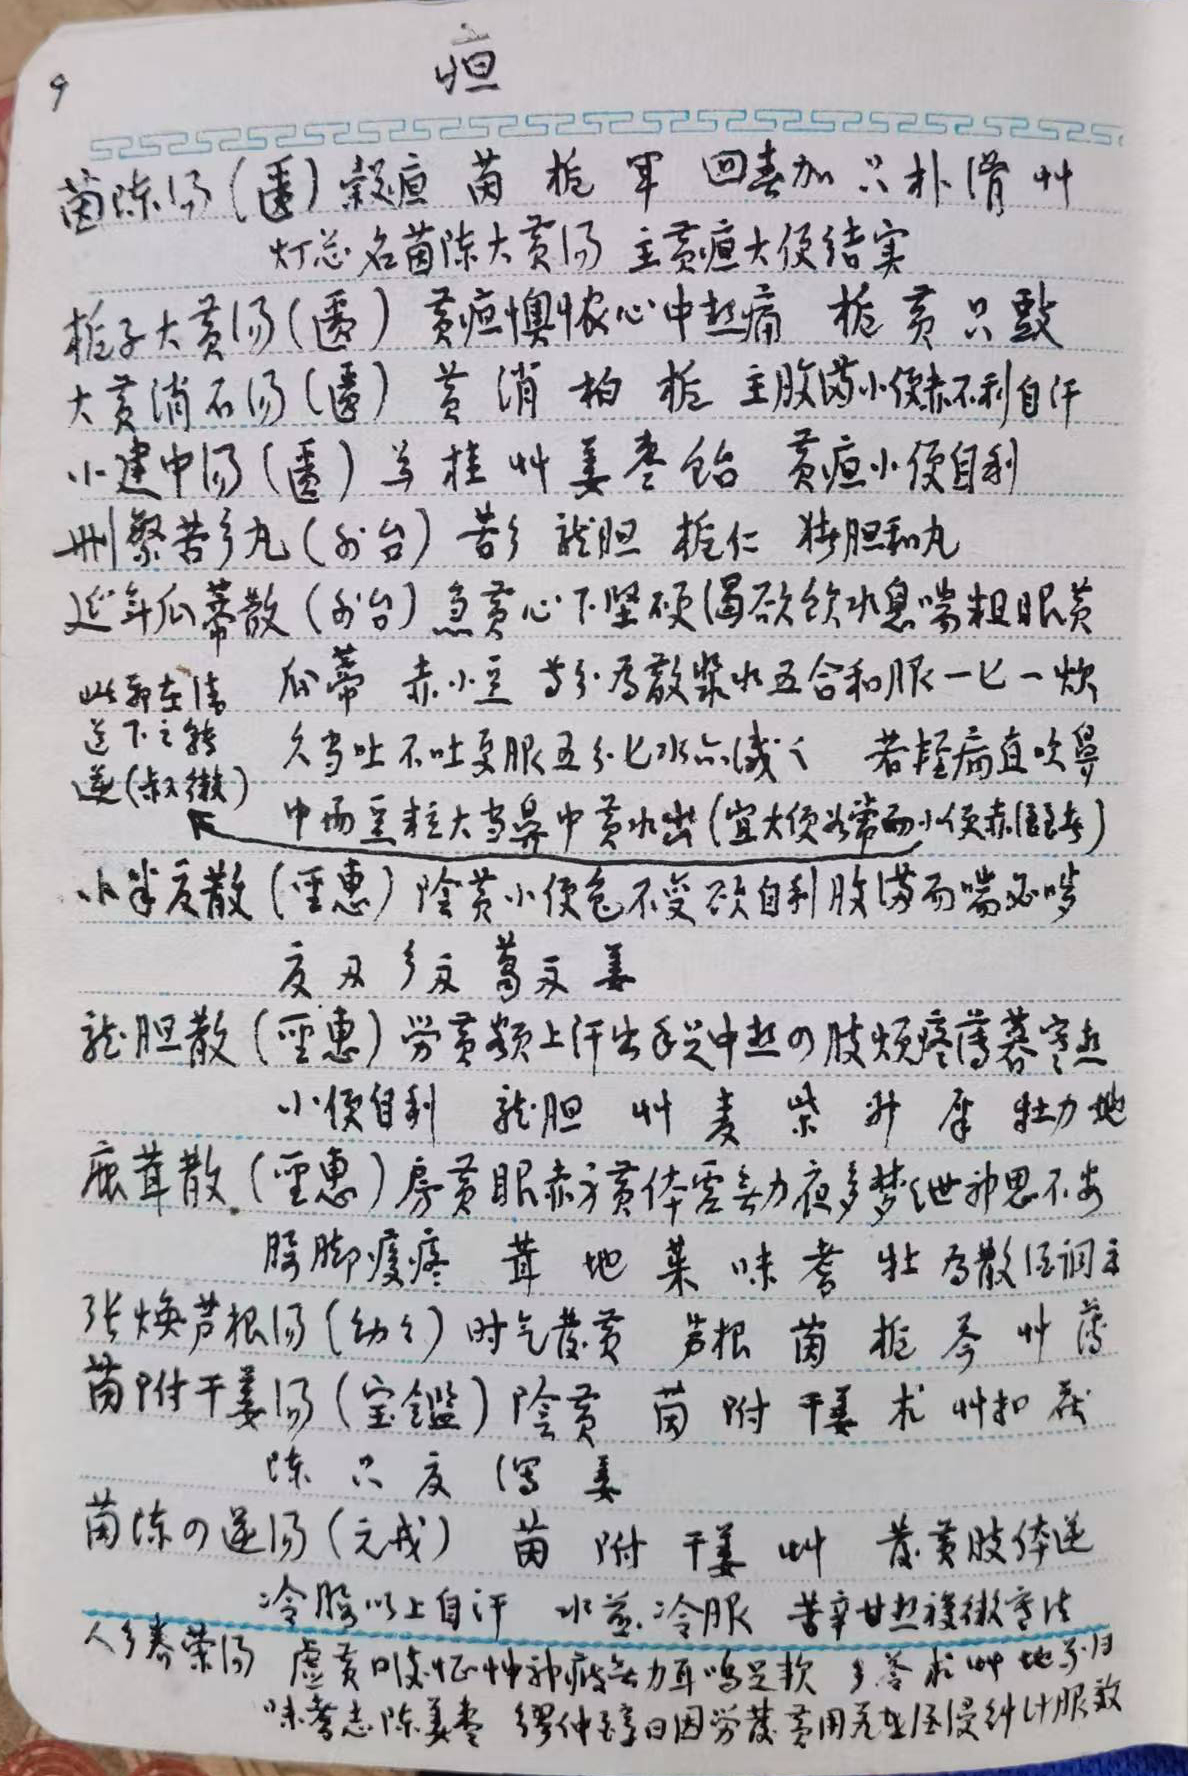 疸
9
茵陈汤(匮)榖疸 茵 栀 军 回春加 只 朴 滑 艹
灯芯名茵陈大黄汤 主黄疸大便结实
栀子大黄汤(匮) 黄疸懊憹心中热痛 栀 黄 只 豉
大黄消石汤(匮) 黄 消 柏 栀 主腹满小便赤不利自汗
小建中汤(匮) 芍 桂 艹 姜 枣 饴 黄疸小便自利
删繁苦参丸(外台) 苦参 龙胆 栀仁 猪胆和丸
延年瓜蒂散(外台) 急黄心下坚硬渴欲饮水息喘粗眼黄
瓜蒂 赤小豆 等分为散浆水五合和服一匕一炊
久当吐不吐更服五分匕水亦减之 若轻病直吹鼻
中两豆粒大当鼻中黄水出(宜大便如常而小便赤涩者)
此郭在清
逆(叔微)
小半夏散(圣惠) 陰黄小便色不变欲自利腹满而喘必哕
夏 参 葛 姜
龙胆散(圣惠) 劳黄额上汗出手足中热の肢烦疼薄暮寒热
小便自利 龙胆 艹 麦 柴 升 犀 牡力 地
鹿茸散(圣惠) 房黄眼赤身黄体虚无力夜多梦泄神思不安
腰脚痠疼 茸 地 茱 味 耆 牡 为散酒调
张焕芦根汤(幼幼) 时气发黄 芦根 茵 栀 芩 艹 薄
茵附干姜汤(宝鑑) 陰黄 茵 附 干姜 术 艹扣 茯
陈 只 夏 泻 姜
茵陈の逆汤(元戎) 茵 附 干姜 艹 发黄肢体逆
冷腰以上自汗 水煎冷服 苦辛甘热複微寒法
人参养荣汤 虚黄口淡怔忡神疲无力耳鸣足软 参 苓 术 艹 地 芍 归
味 耆 志 陈 姜 枣 缪仲醇曰因劳发黄用